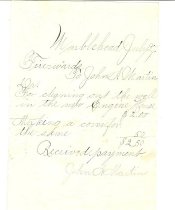 Marblehead July
Firewards
To John A Martin
Dr.
For cleaning out the well
in the new Engine House
$2.00
Making a cover for
the same .50
$2.50
Received payment
John A Martin